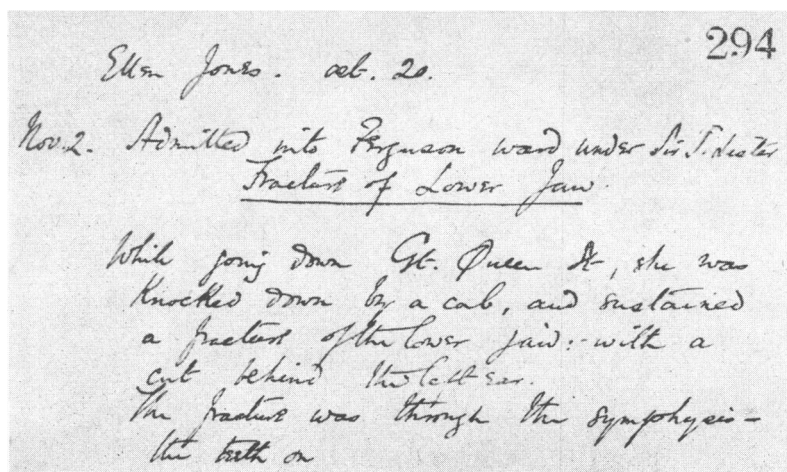 294
Ellen Jones. aet. 20.
Nov. 2. Admitted into Ferguson ward under Sir J. Lister
Fracture of Lower Jaw.
While going down Gt. Queen St, she was
knocked down by a cab, and sustained
a fracture of the lower jaw:- with a
cut behind the left ear.
The fracture was through the symphysis -
the teeth on